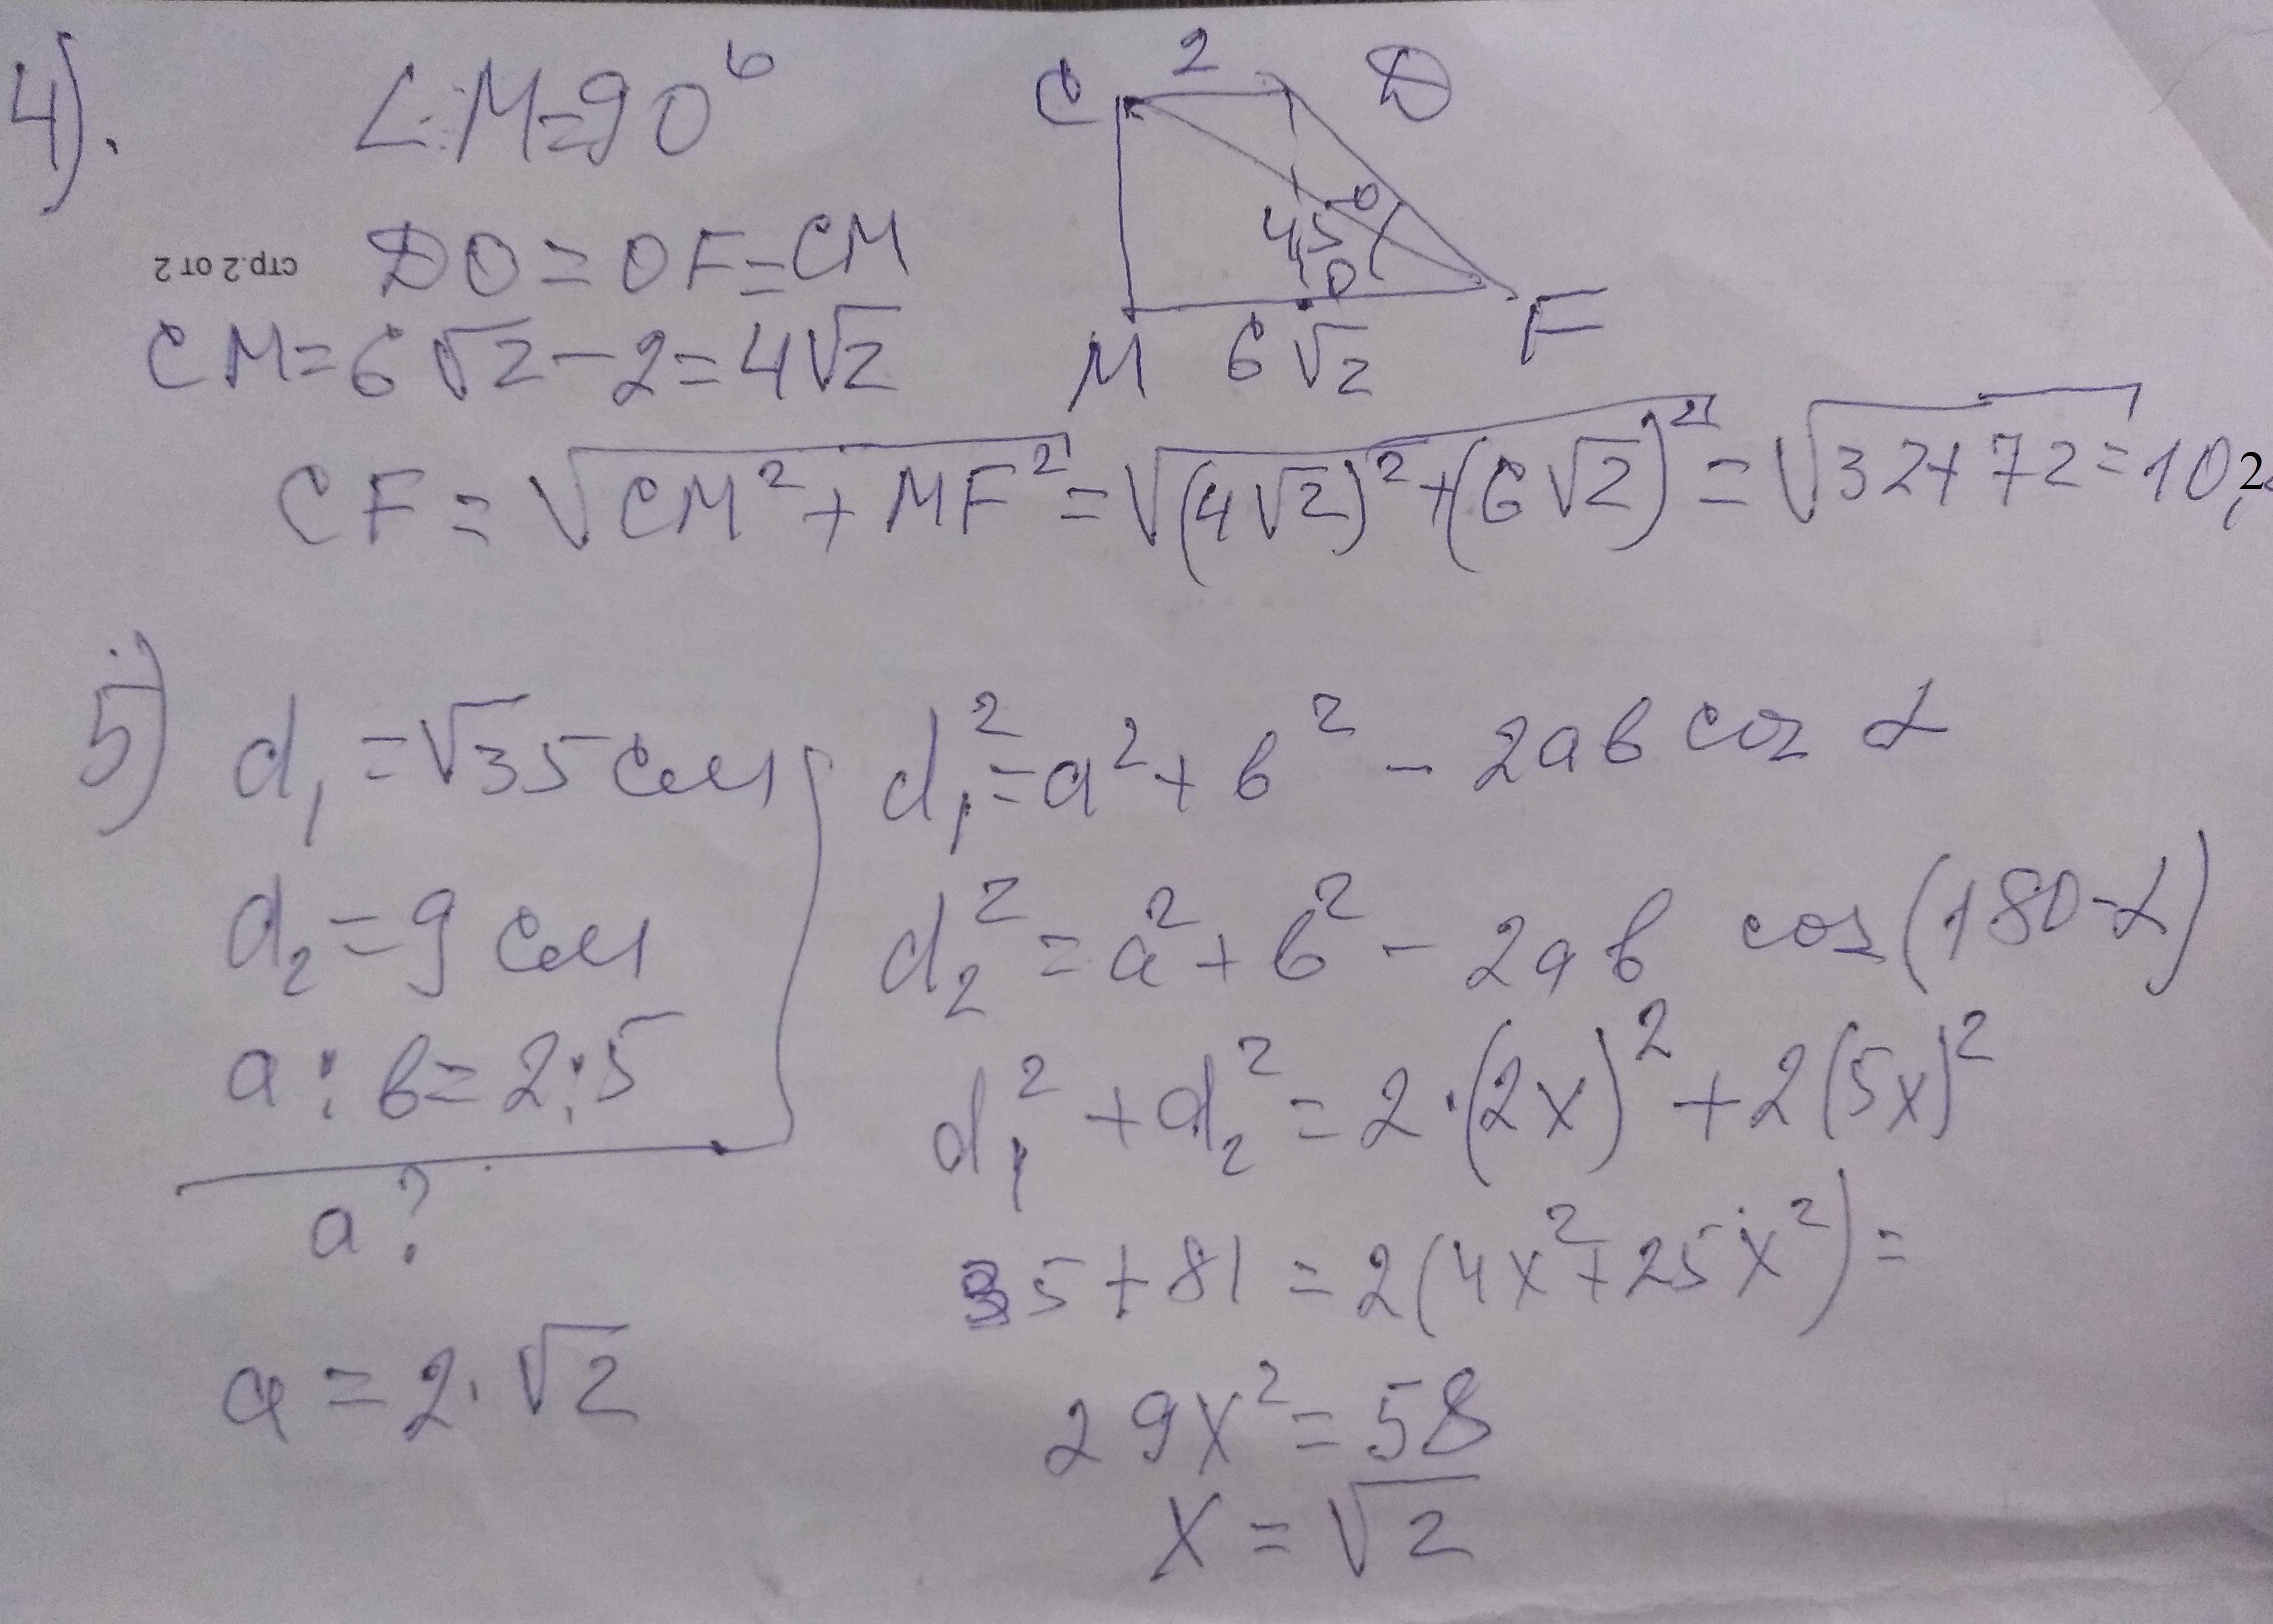 4).
∠M=90°
C 2 D
45°
O
M 6√2 F
DO=OF=CM
стр.2 от 2
CM=6√2-2=4√2
CF=√CM²+MF²=√(4√2)²+(6√2)²=√32+72=10,2
5)
d₁=√35 см
d₂=9 см
a:b=2:5
a?
a=2·√2
d₁²=a²+b²-2ab cos α
d₂²=a²+b²-2ab cos(180-α)
d₁²+d₂²=2·(2x)²+2(5x)²
35+81=2(4x²+25x²)=
29x²=58
x=√2